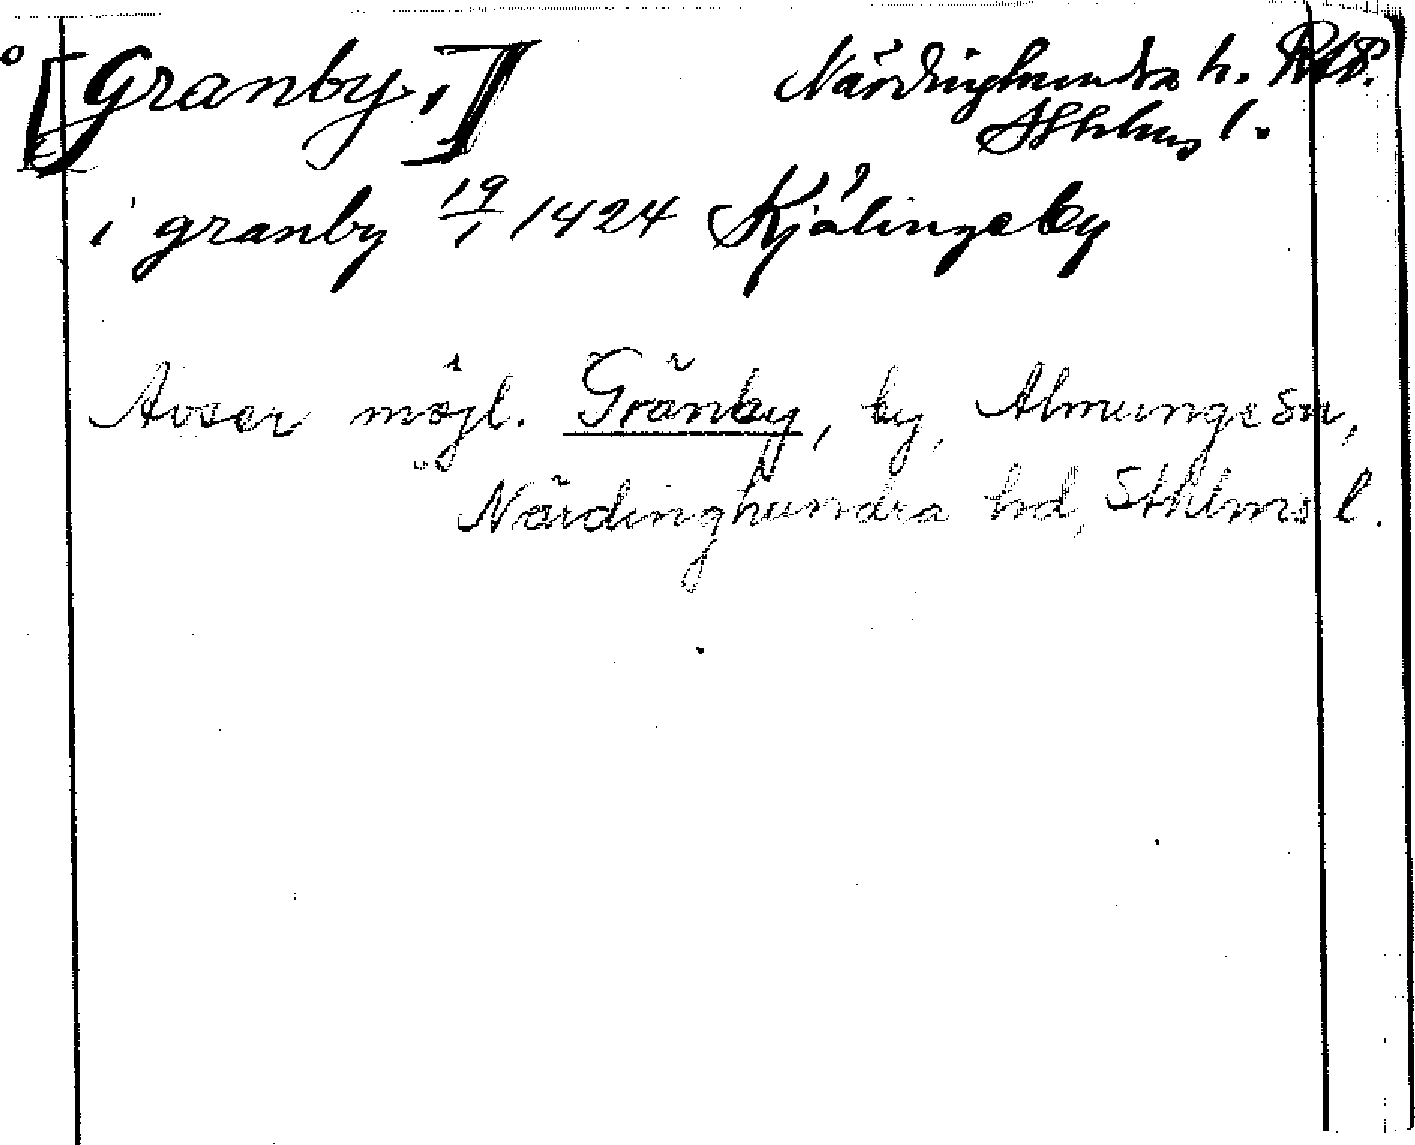 [Granby,] Närdinghundra h.
Sthlms l.
i granby 19/1 1424 Kjälingeby
Avser möjl. Gränby, by, Almunge sn,
Närdinghundra hd, Sthlms l.